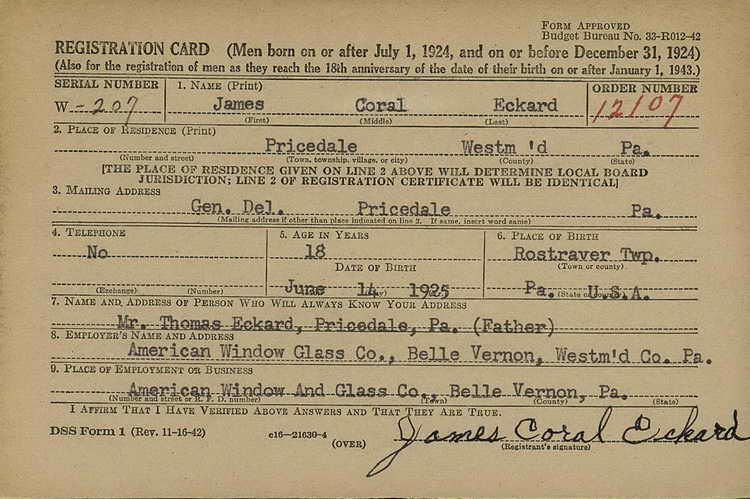 FORM APPROVED
Budget Bureau No. 33-R012-42
REGISTRATION CARD (Men born on or after July 1, 1924, and on or before December 31, 1924)
(Also for the registration of men as they reach the 18th anniversary of the date of their birth on or after January 1, 1943.)
SERIAL NUMBER 1. NAME (Print) ORDER NUMBER
W-207 James Coral Eckard 12107
(First) (Middle) (Last)
2. PLACE OF RESIDENCE (Print)
Pricedale Westm 'd Pa.
(Number and street) (Town, township, village, or city) (County) (State)
[THE PLACE OF RESIDENCE GIVEN ON LINE 2 ABOVE WILL DETERMINE LOCAL BOARD
JURISDICTION; LINE 2 OF REGISTRATION CERTIFICATE WILL BE IDENTICAL]
3. MAILING ADDRESS
Gen. Del. Pricedale Pa.
(Mailing address if other than place indicated on line 2. If same, insert word same)
4. TELEPHONE 5. AGE IN YEARS 6. PLACE OF BIRTH
No 18 Rostraver Twp.
DATE OF BIRTH (Town or county)
June 14 1925 Pa. U.S.A.
(Exchange) (Number) (State or
7. NAME AND ADDRESS OF PERSON WHO WILL ALWAYS KNOW YOUR ADDRESS
Mr. Thomas Eckard, Pricedale, Pa. (Father)
8. EMPLOYER'S NAME AND ADDRESS
American Window Glass Co., Belle Vernon, Westm'd Co. Pa.
9. PLACE OF EMPLOYMENT OR BUSINESS
American Window And Glass Co., Belle Vernon, Pa.
(Number and street or R. F. D. number) (Town) (County) (State)
I AFFIRM THAT I HAVE VERIFIED ABOVE ANSWERS AND THAT THEY ARE TRUE.
DSS Form 1 (Rev. 11-16-42) c16-21630-4 James Coral Eckard
(OVER) (Registrant's signature)